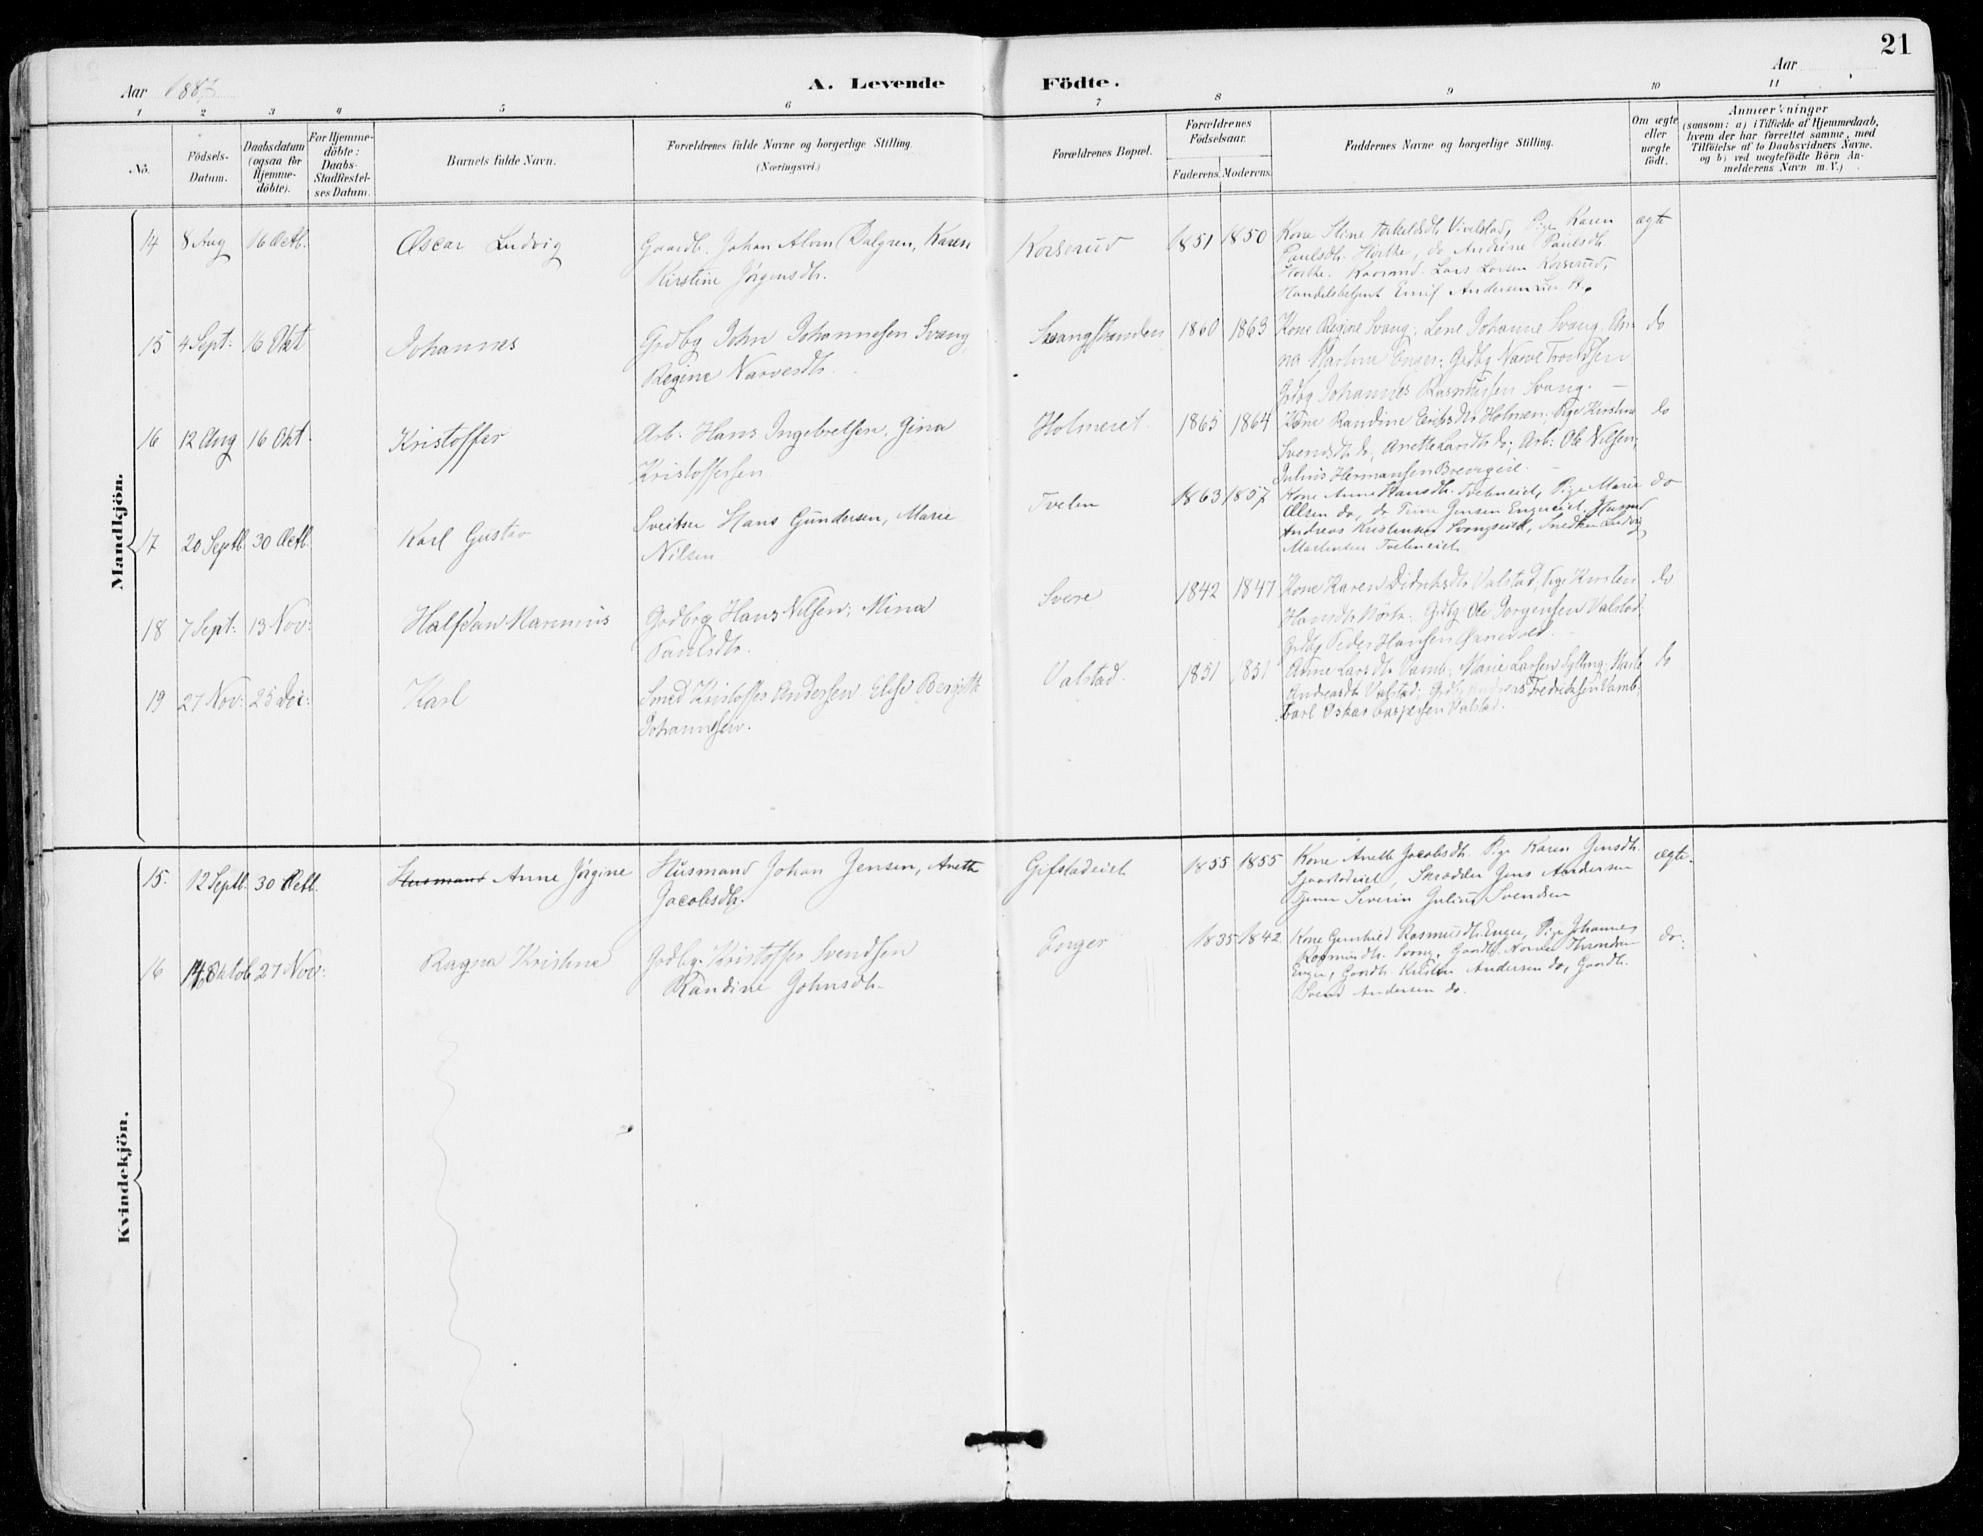 21
Aar 1887
A. Levende Födte.
Aar
1 2 3 4 5 6 7 8 9 10 11
No.
Födsels-
Datum.
Daabsdatum
(ogsaa for
Hjemme-
döbte).
For Hjemme-
döbte:
Daabs-
Stadfæstel-
ses Datum.
Barnets fulde Navn.
Forældrenes fulde Navne og borgerlige Stilling.
(Næringsvei.)
Forældrenes Bopæl.
Forældrenes
Födselsaar.
Faderens. Moderens.
Faddernes Navne og borgerlige Stilling.
Om ægte
eller
uægte
födt.
Anmærkninger
(saasom: a) i Tilfælde af Hjemmedaab,
hvem der har forrettet samme, med
Tilföielse af to Daabsvidners Navne.
og b) ved uægtefödte Börn An-
melderens Navn m. V.)
Mandkjön.
14 8 Aug 16 Octb. Oscar Ludvig
Gaardb. Johan Alvin Dalgren, Karen
Kirstine Jørgensdtr.
Korserud 1851 1850
Kone Stine Torkildsdtr Vivelstad, Pige Karen
Paulsdtr. Horthe, do Andrine Paulsdtr.
Horthe. Lars Larsen Korserud,
Handelsbetjent Emil Andersen Lier St.
ægte
15 4 Sept: 16 Okt Johannes
Grdbg John Johannesen Svang
Regine Narvesdtr.
Svangstranden 1860 1863
Kone Regine Svang; Lene Johanne Svang, An-
na Martine Enger; Grdbg Narve Trondsen
Grdbg Johannes Rasmussen Svang.
do
16 12 Aug 16 Okt. Kristoffer
Arb. Hans Ingebretsen, Gina
Kristoffersen
Holmeret 1865 1864
Kone Randine Eriksdtr Holmen. Pige Kirstine
Svendsdtr do, Anette do; Arb: Ole Nilsen,
Julius Hermansen
do
17 20 Septb. 30 Octb. Karl Gustav
Sveitser Hans Gundersen, Marie
Nilsen
Tveten 1863 1857
Kone Anne Hansdtr. Tveteneiet, Pige Marie
Olsen do, do Trine Jensen Engereiet, Husmd
Andreas Kristensen Svangseiet, Snedker Ludvig
Martinsen Tveteneiet
do
18 7 Sept: 13 Nov: Halfdan Marinius
Grdbrg Hans Nilsen; Mina
Paulsdtr.
Svere 1842 1847
Kone Karen Didriksdtr Valstad, Pige Kirsten
Hansdtr Grdbg Ole Jørgensen Valstad,
Grdbg Peder Hansen
do
19 27 Nov: 25 Dec: Karl
Smed Kristoffer Andersen Elise Bergitte
Johannesen.
Valstad. 1851 1851
Anne Larsdtr Vamb; Marie Larsen Sylling;
Andreasdtr Valstad; Grdbg Fredriksen Vamb,
Carl Oskar Caspersen Valstad.
do
Kvindekjön.
15. 12 Septb. 30 Octb. Husmand Anne Jørgine
Husmand Johan Jensen, Anette
Jacobsdtr.
Gifstadeiet 1855 1855
Kone Anette Jacobsdtr. Pige Karen Jensdtr.
Skrædder Jens Andersen
Tjener Severin Julius Svendsen
ægte.
16 14 Oktob 27 Nov: Ragna Kristine
Grdbg. Kristoffer Svendsen
Randine Johnsdtr.
Enger 1835 1842
Kone Gunhild Rasmusdtr Enger, Pige Johanne
Rasmusdtr. Svang, Gaardb. Narve Throndsen
Enger, Gaardb. Kristen Andersen do, Gaardb.
Svend Andersen do.
do.